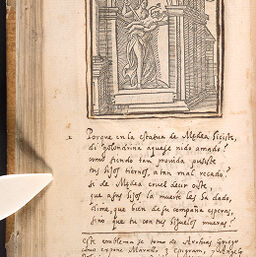 1 Porque en la estatua de Medea hiciste,
di golondrina aquese nido amado?
como siendo tan provida pusiste
tus hijos tiernos, a tan mal recado?
si de Medea cruel decir oiste
que a sus hijos la muerte les ha dado,
dime, que bien de su compañia esperas,
sino que tu con tus hijuelos mueras?
Este emblema se tomo de Archias Griego
como expone Marcos